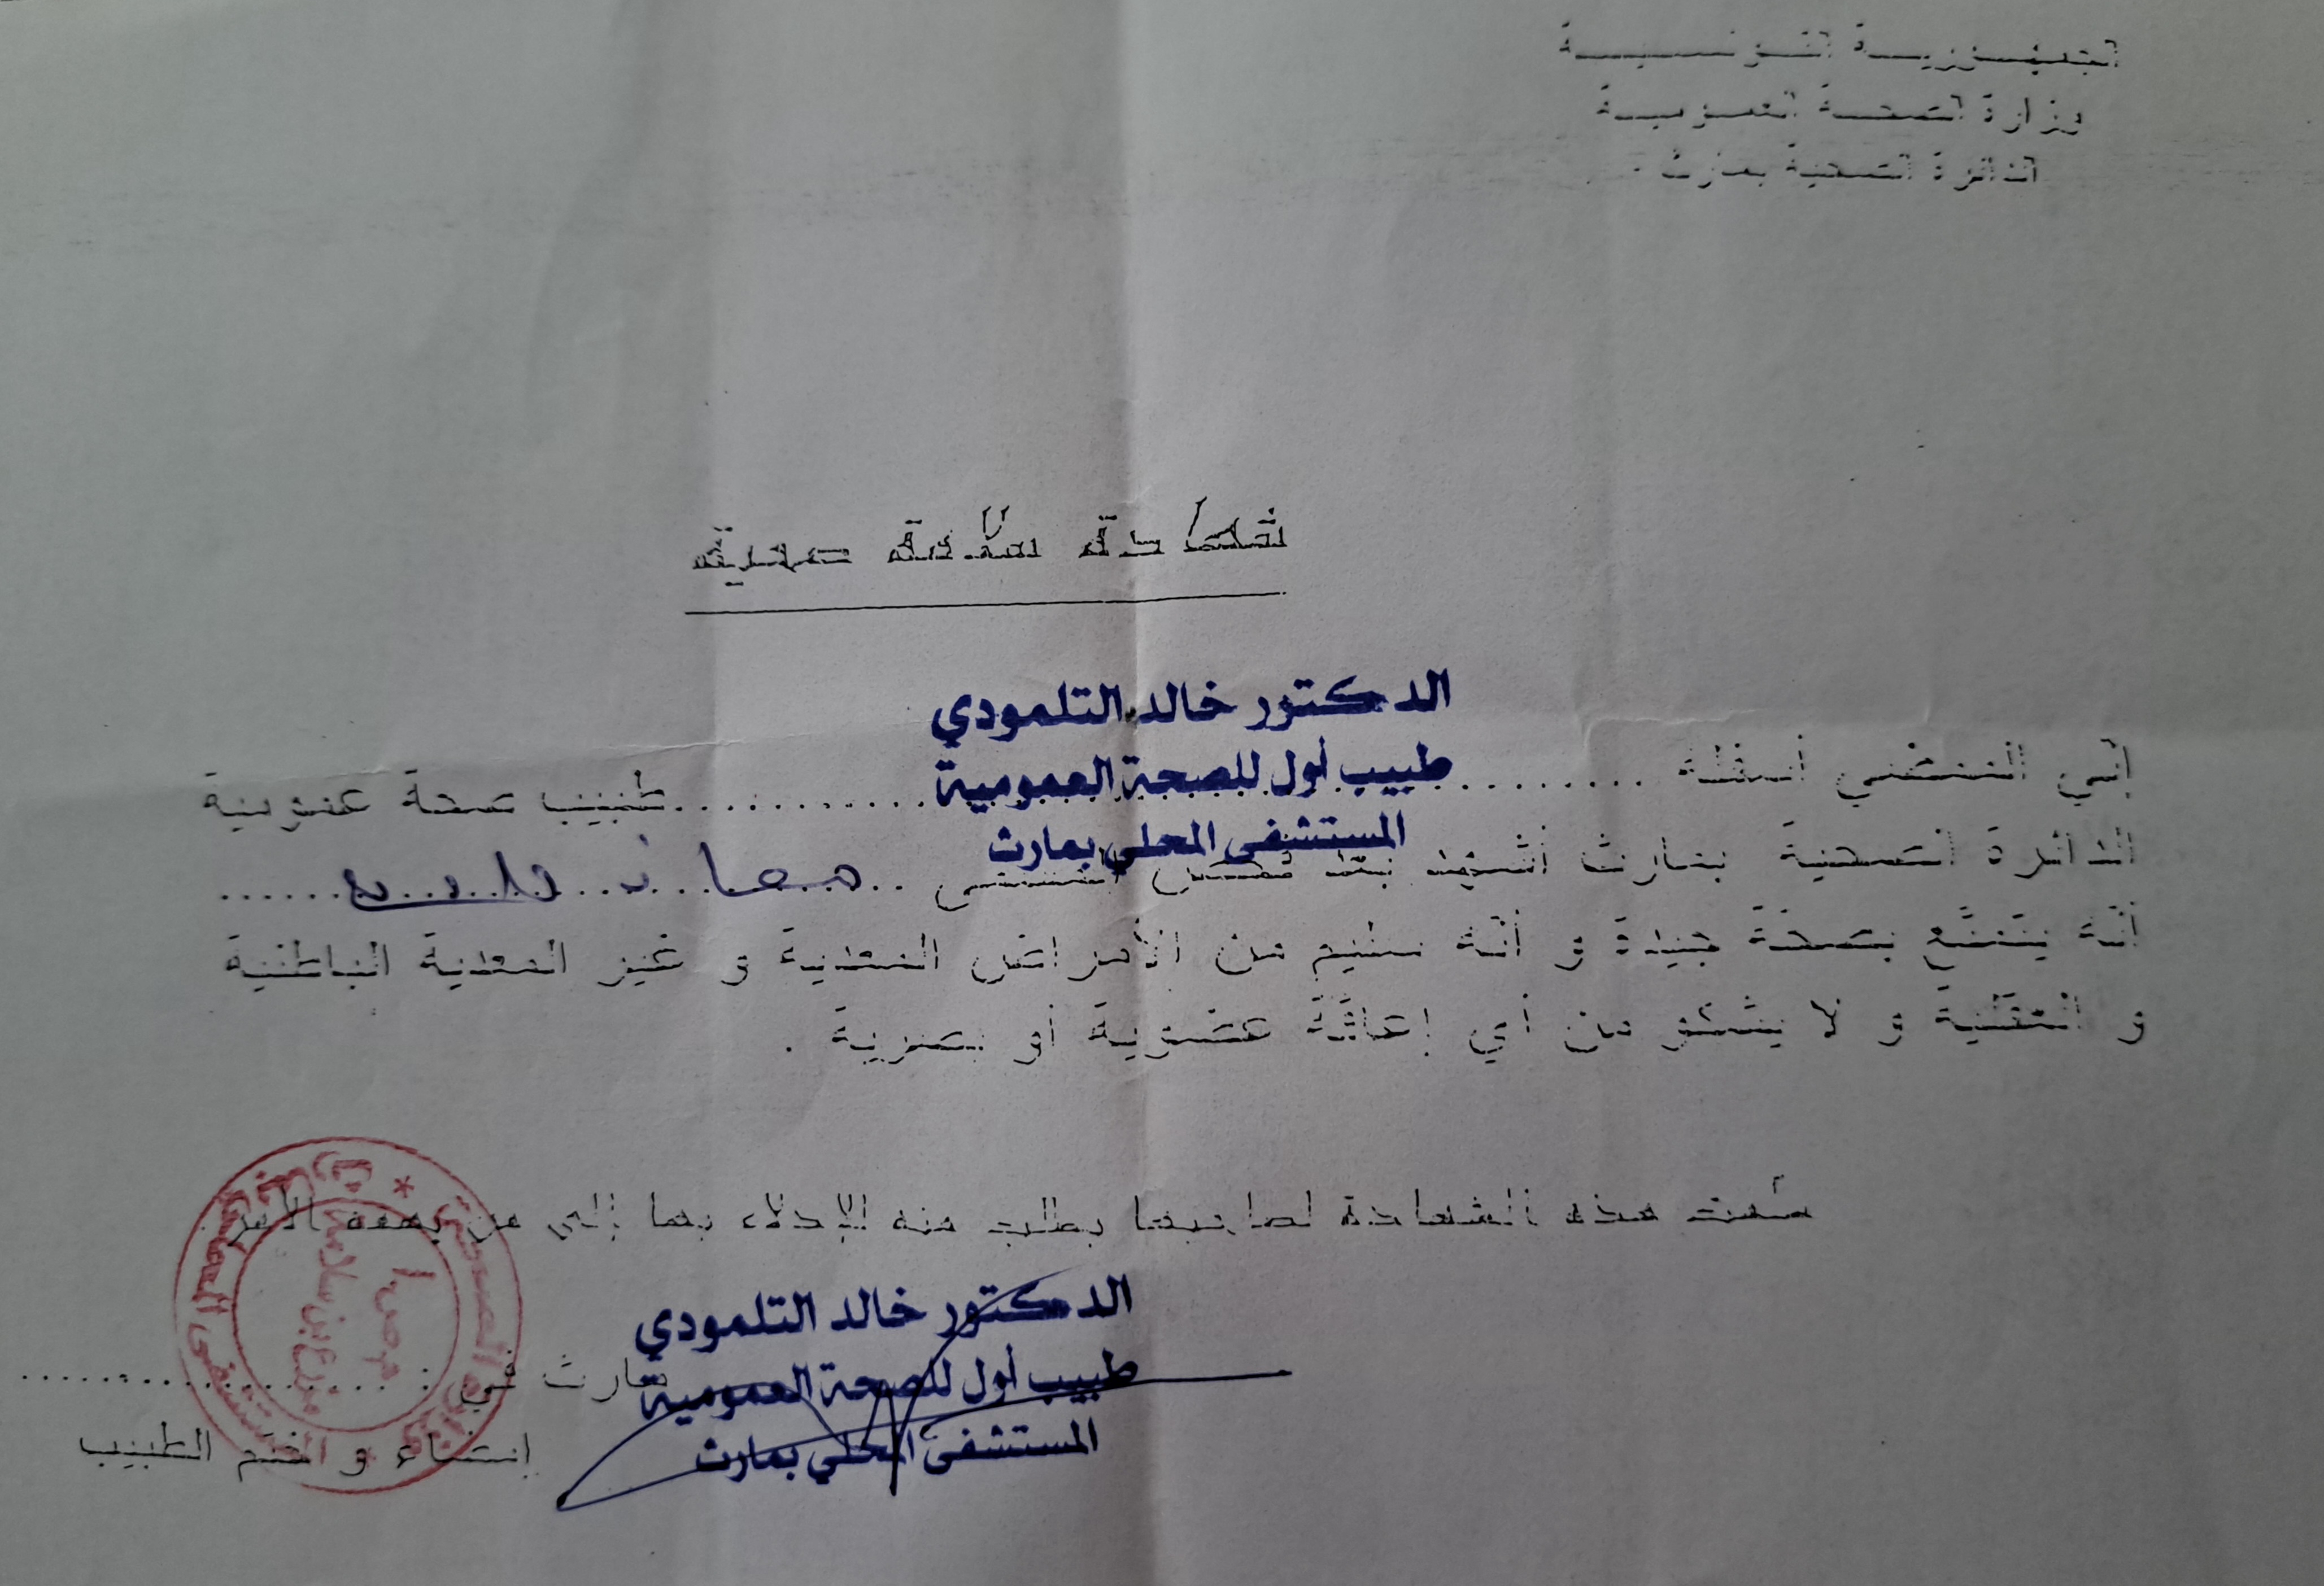 الجمهورية التونسية
وزارة الصحة العمومية
الدائرة الصحية بمارث
شهادة سلامة صحية
الدكتور خالد التلمودي
طبيب أول للصحة العمومية
المستشفى المحلي بمارث
إنّي الممضي أسفله ........ طبيب صحة عمومية
الدائرة الصحية بمارث أشهد بعد فحص المسمى .. معاذ ......
أنّه يتمتّع بصحّة جيدة و أنّه سليم من الأمراض المعدية و غير المعدية الباطنية
و العقلية و لا يشكو من أي إعاقة عضوية أو بصرية .
سلّمت هذه الشهادة لصاحبها بطلب منه للإدلاء بها إلى من يهمه الأمر .
الدكتور خالد التلمودي
طبيب أول للصحة العمومية
المستشفى المحلي بمارث
مارث في : ..................
إمضاء و الختم الطبيب